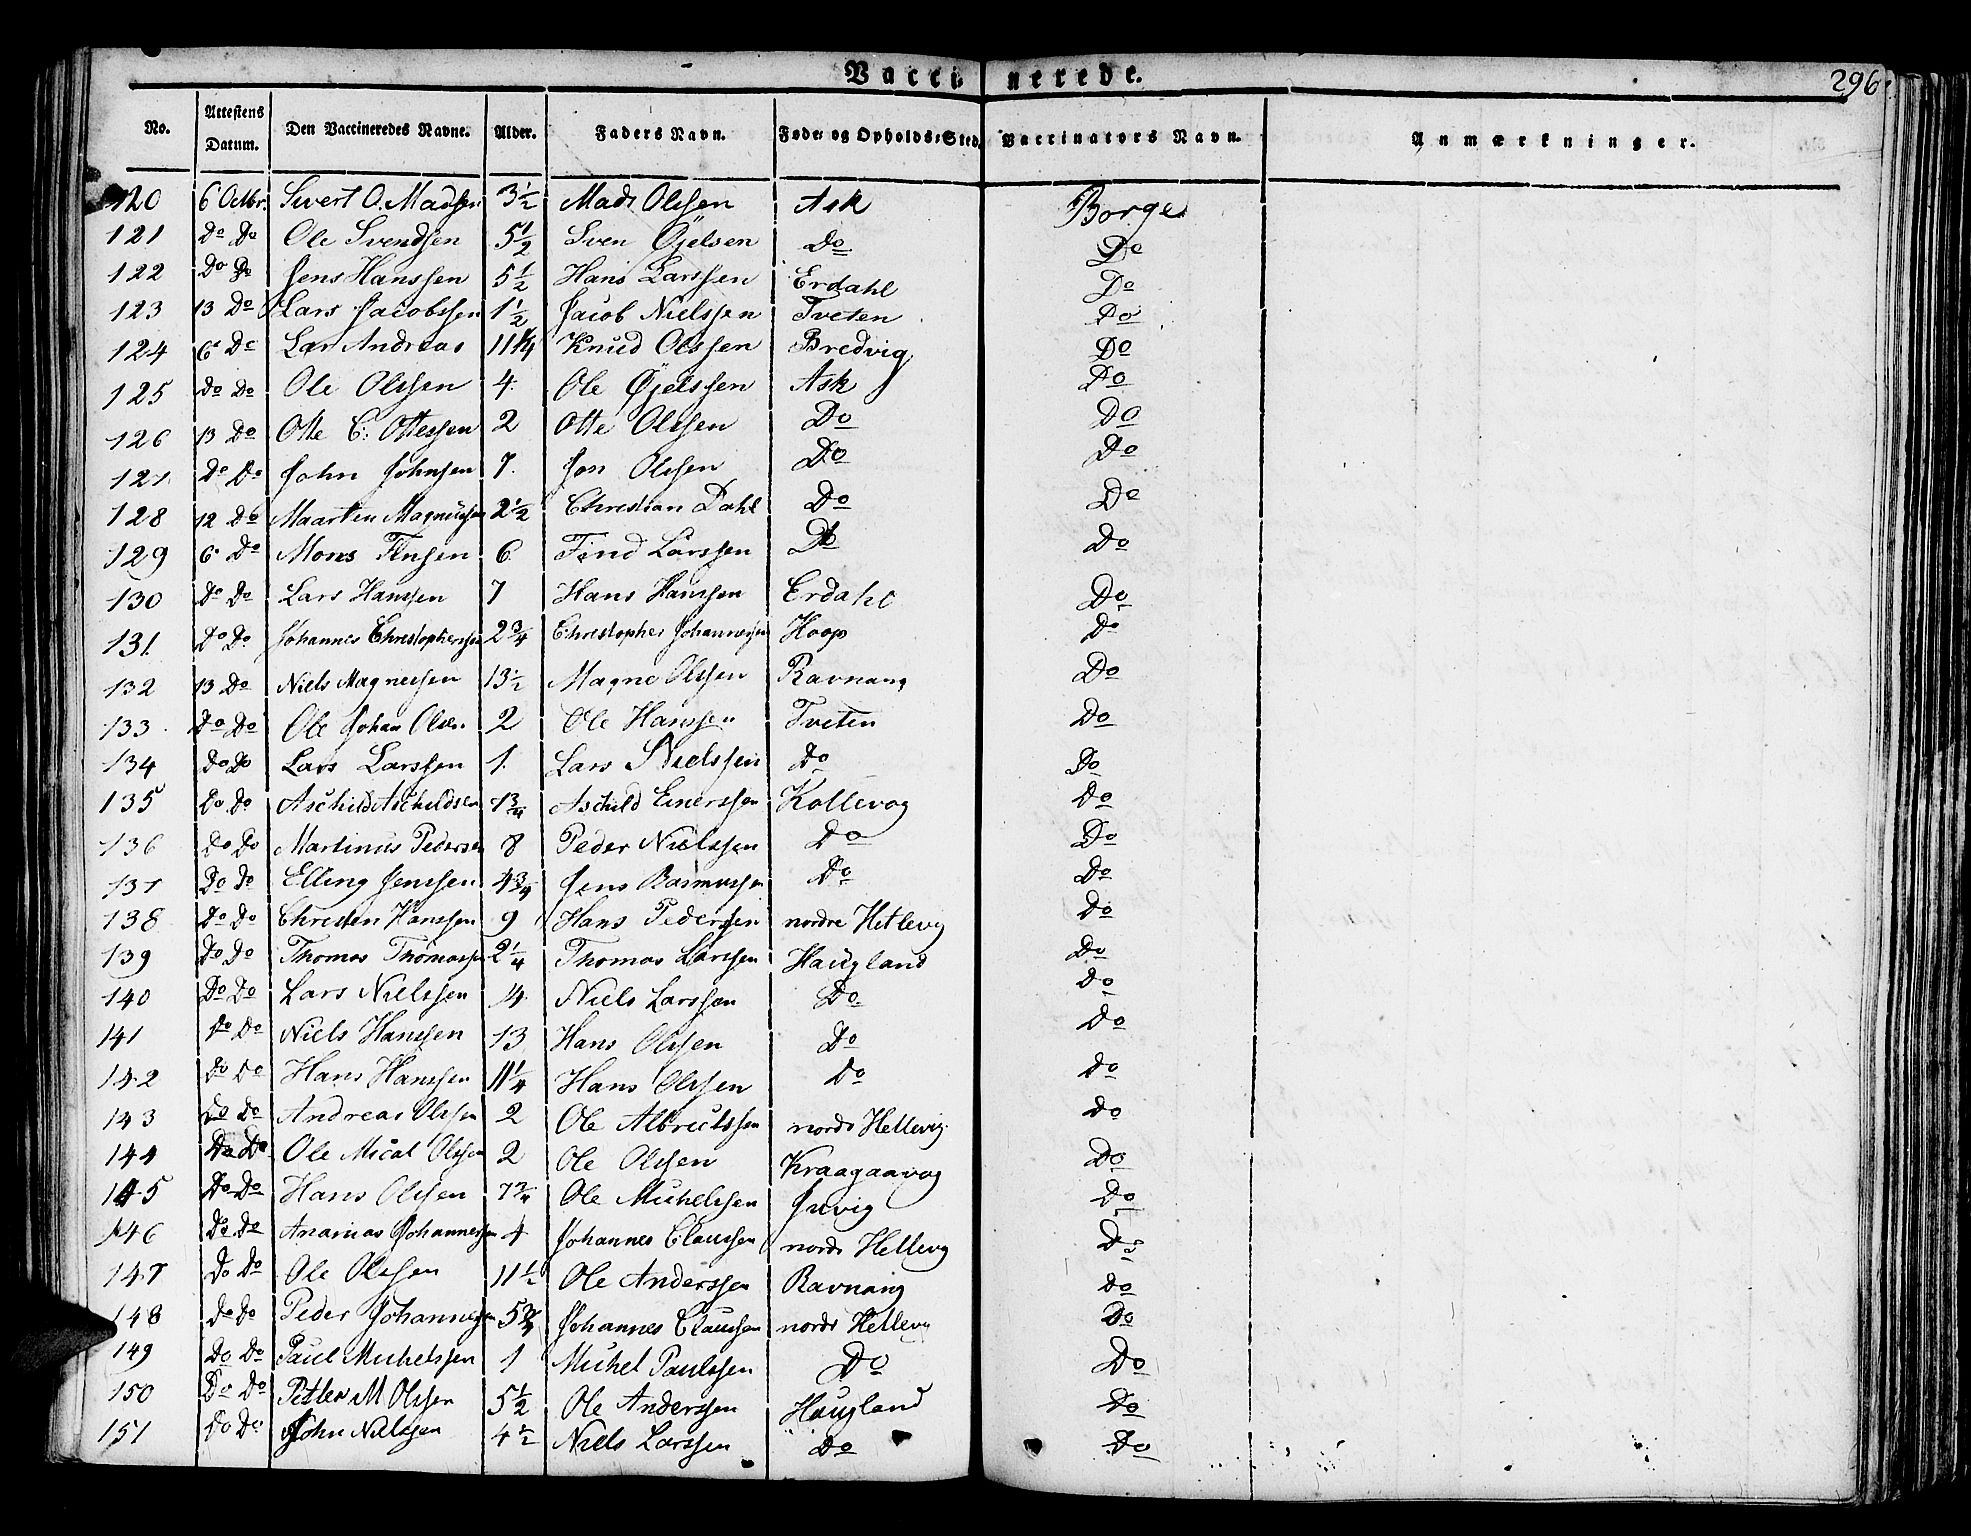 Vaccinerede. 296.
No. Attestens Datum. Den Vaccineredes Navne. Alder. Faders Navn. Føde- og Opholds-Sted. Vaccinators Navn. Anmærkninger.
120 6 Octbr. Sivert O. Madsen 3½ Mads Olssen Ask Borge
121 Do Do Ole Svendsen 5½ Sven Øjelsen Do Do
122 Do Do Jens Hanssen 5½ Hans Larssen Erdahl Do
123 13 Do Lars Jacobssen 1½ Jacob Nielssen Tveten Do
124 6 Do Lar Andreas 11¼ Knud Olssen Bredvig Do
125 Do Do Ole Olssen 4. Ole Øjelssen Ask Do
126 13 Do Otte C: Ottessen 2 Otte Olssen Do Do
127 Do Do John Johnsen 7. Jon Olssen Do Do
128 12 Do Maarten Magnussen 2½ Christian Dahl Do Do
129 6 Do Mons Finsen 6 Find Larssen Do Do
130 Do Do Lars Hanssen 7 Hans Hanssen Erdahl Do
131. Do Do Johannes Christophersen 2¾ Christopher Johannessen Hoop Do
132 13 Do Niels Magnessen 13½ Magne Olssen Ravnang Do
133. Do Do Ole Johan Olsen 2 Ole Hanssen Tveten Do
134 Do Do Lars Larssen 1. Lars Nielssen Do Do
135 Do Do Aschild Aschildsen 1¾ Aschild Einerssen Kollevog Do
136 Do Do Martinus Pedersen 8 Peder Nielssen Do Do
137 Do Do Elling Jenssen 4¾ Jens Rasmussen Do Do
138 Do Do Christen Hanssen 9 Hans Pederssen nordre Hetlevig Do
139 Do Do Thomas Thomassen 2¼ Thomas Larssen Haugland Do
140 Do Do Lars Nielssen 4 Niels Larssen Do Do
141 Do Do Niels Hanssen 13 Hans Olssen Do Do
142 Do Do Hans Hanssen 11¼ Hans Olssen Do Do
143 Do Do Andreas Olssen 2 Ole Albrictssen nordr Hellevig Do
144 Do Do Ole Mical Olssen 2 Ole Olssen Kraagaavog Do
145 Do Do Hans Olssen 7¾ Ole Michelssen Juvig Do
146 Do Do Ananias Johannessen 4 Johannes Claussen nordr Hellevig Do
147 Do Do Ole Olssen 11½ Ole Anderssen Ravnang Do
148 Do Do Peder Johannessen 5¾ Johannes Claussen nordr Hellevig Do
149 Do Do Paul Michelssen 1 Michel Paulssen Do Do
150 Do Do Petter M Olssen 5½ Ole Anderssen Haugland Do
151 Do Do John Nielssen 4½ Niels Larssen Do Do